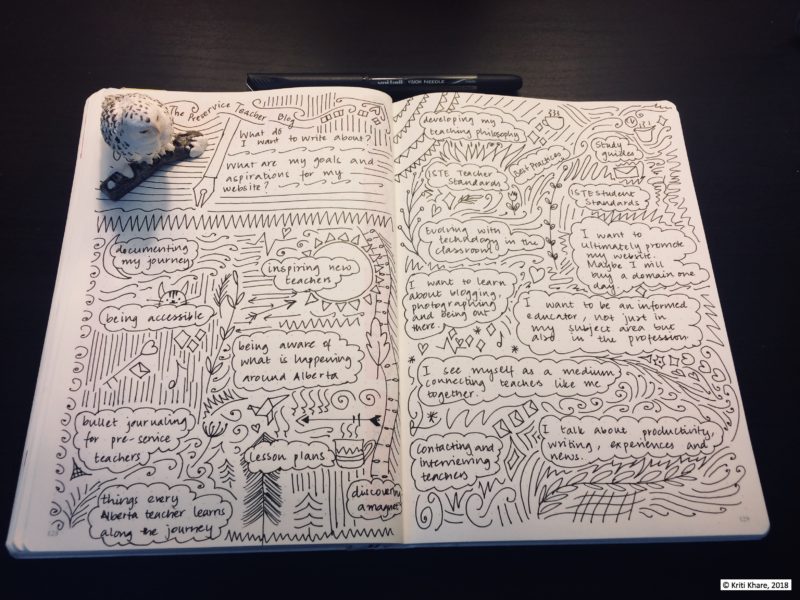 uniball VISION NEEDLE
The Preservice Teacher Blog
What do
I want to write about?
What are my goals and
aspirations for my
website?
documenting
my journey
inspiring new
teachers
being accessible
being aware of
what is happening
around Alberta
bullet journaling
for pre-service
teachers
Lesson plans
things every
Alberta teacher learns
along the journey
discovering
a magnet
128
developing my
teaching philosophy
Best Practices
Study
guides
ISTE Teacher
Standards
ISTE Student
Standards
Evolving with
technology in the
classroom
I want to
ultimately promote
my website.
Maybe I will
buy a domain one
day.
I want to learn
about blogging,
photographing
and being out
there.
I want to be an informed
educator, not just in
my subject area but
also in the profession
I see myself as a medium
connecting teachers like me
together.
Contacting and
Interviewing
teachers
I talk about productivity,
writing, experiences and
news.
129
© Kriti Khare, 2018